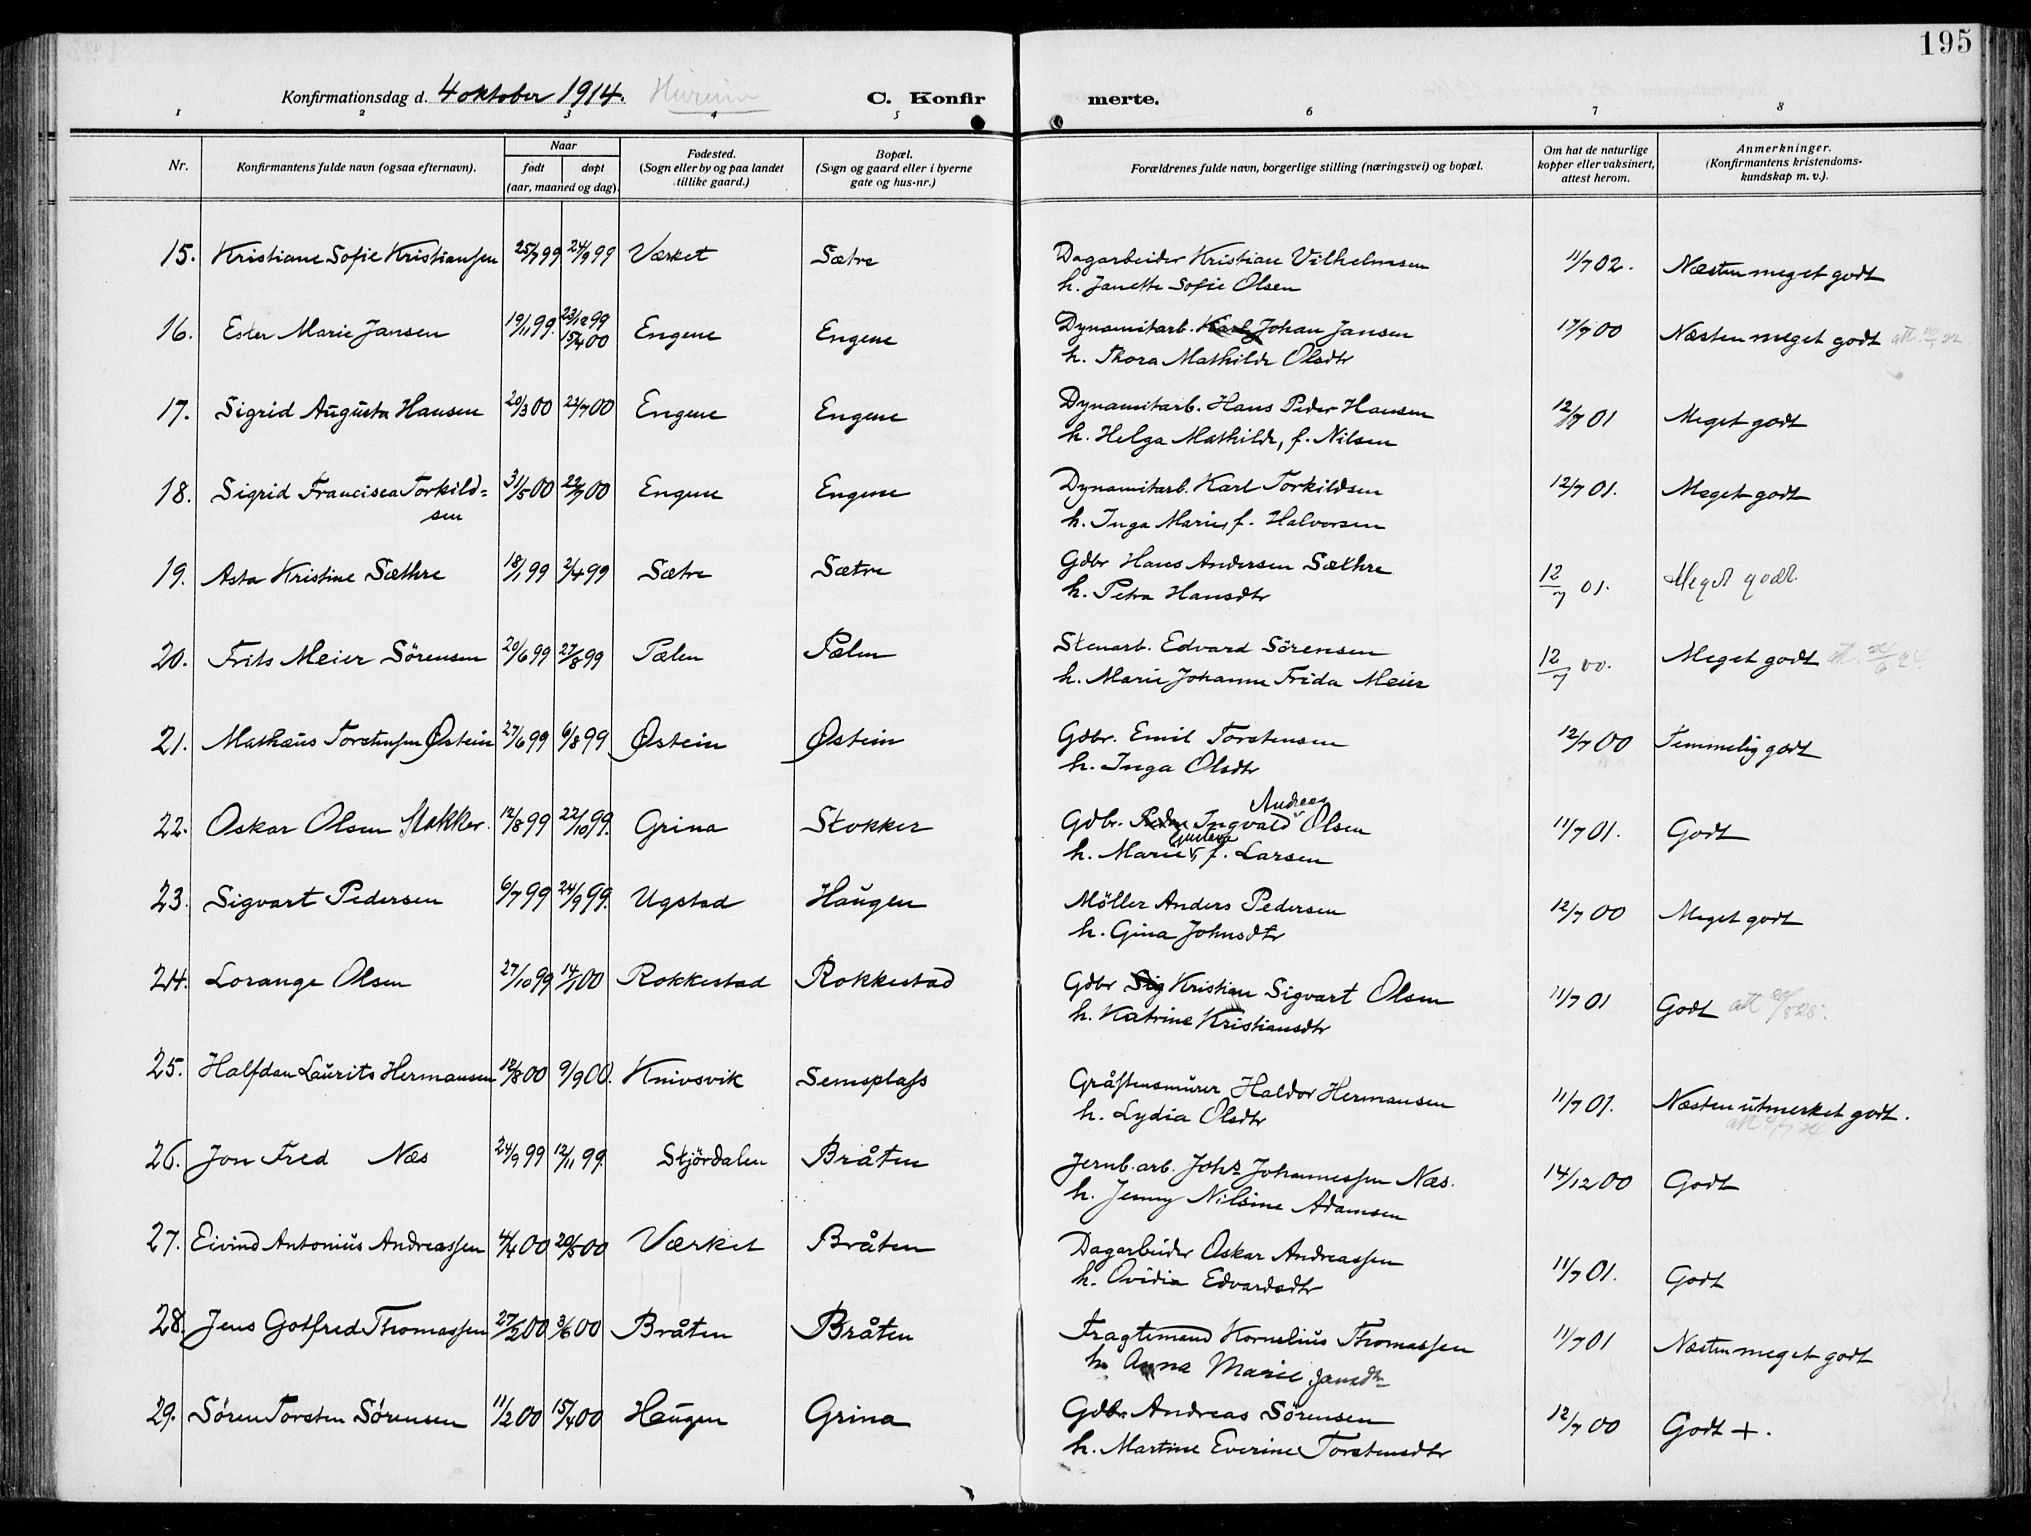 195
Konfirmationsdag d. 4 oktober 1914. Hurum C. Konfir merte.
1 2 3 4 5 6 7 8
Nr. Konfirmantens fulde navn (ogsaa efternavn). Naar født døpt (aar, maaned og dag). Fødested. (Sogn eller by og paa landet tillike gaard.) Bopæl. (Sogn og gaard eller i byerne gate og hus-nr.) Forældrenes fulde navn, borgerlige stilling (næringsvei) og bopæl. Om hat de naturlige kopper eller vaksinert, attest herom. Anmerkninger. (Konfirmantens kristendoms-kundskap m. v.).
15. Kristiane Sofie Kristiansen 25/7 99 24/9 99 Værket Sætre Dagarbeider Kristian Vilhelmsen 11/7 02. Næsten meget godt
h. Janette Sofie Olsen
16. Ester Marie Jansen 19/11 99. 23/12 99 15/4 00 Engene Engene Dynamitarb. Karl Johan Jansen 17/7 00 Næsten meget godt
h. Thora Mathilde Olsdtr
17. Sigrid Augusta Hansen 20/3 00 22/7 00 Engene Engene Dynamitarb. Hans Peder Hansen 12/7 01 Meget godt
h. Helga Mathilde, f. Nilsen
18. Sigrid Francisca Torkild= 31/5 00 22/7 00 Engene Engene Dynamitarb. Karl Torkildsen 12/7 01. Meget godt
sen h. Inga Marie, f. Halvorsen
19. Asta Kristine Sæthre 18/1 99 2/4 99 Sætre Sætre Gdbr Hans Andersen Sæthre 12/7 01. Meget godt.
h. Petra Hansdtr
20. Frits Meier Sörensen 20/6 99 27/8 99 Pælen Pælen Stenarb. Edvard Sörensen 12/7 00. Meget godt
h. Marie Johanne Frida Meier
21. Mathæus Torstensen Østein 27/6 99 6/8 99 Østein Østein Gdbr. Emil Torstensen 12/7 00 Temmelig godt
h. Inga Olsdtr
22. Oskar Olsen Stokker. 12/8 99 22/10 99. Grina Stokker Gdbr. Peder Ingvald Andreas Olsen 11/7 01. Godt
h. Marie Gustava, f. Larsen
23. Sigvart Pedersen 6/7 99 24/9 99. Ugstad Haugen Möller Anders Pedersen 12/7 00 Meget godt
h. Gina Johnsdtr
24. Lorange Olsen 27/10 99 14/1 00 Rokkestad Rokkestad Gdbr Sig Kristian Sigvart Olsen 11/7 01 Godt
h. Katrine Kristiansdtr
25. Halfdan Laurits Hermansen 12/8 00 9/9 00. Knivsvik Semsplass Gråstensmurer Haldor Hermansen 11/7 01. Næsten utmerket godt.
h. Lydia Olsdtr
26. Jon Fred Næs 24/9 99 12/11 99. Stjördalen Bråten Jernb. arb. Johs Johannessen Næs. 14/12 00 Godt
h. Jenny Nilsine Adamsen
27. Eivind Antonius Andreassen 4/4 00 20/5 00 Værket Bråten Dagarbeider Oskar Andreassen 11/7 01. Godt
h. Ovidia Edvardsdtr
28. Jens Gotfred Thomassen 27/2 00 3/6 00 Bråten Bråten Fragtemand Kornelius Thomassen 11/7 01 Næsten meget godt
h. Anna Marie Jansdtr
29. Sören Torsten Sörensen 11/2 00 15/4 00 Haugen Grina Gdbr Andreas Sörensen 12/7 00 Godt +.
h. Martine Everine Torstensdtr